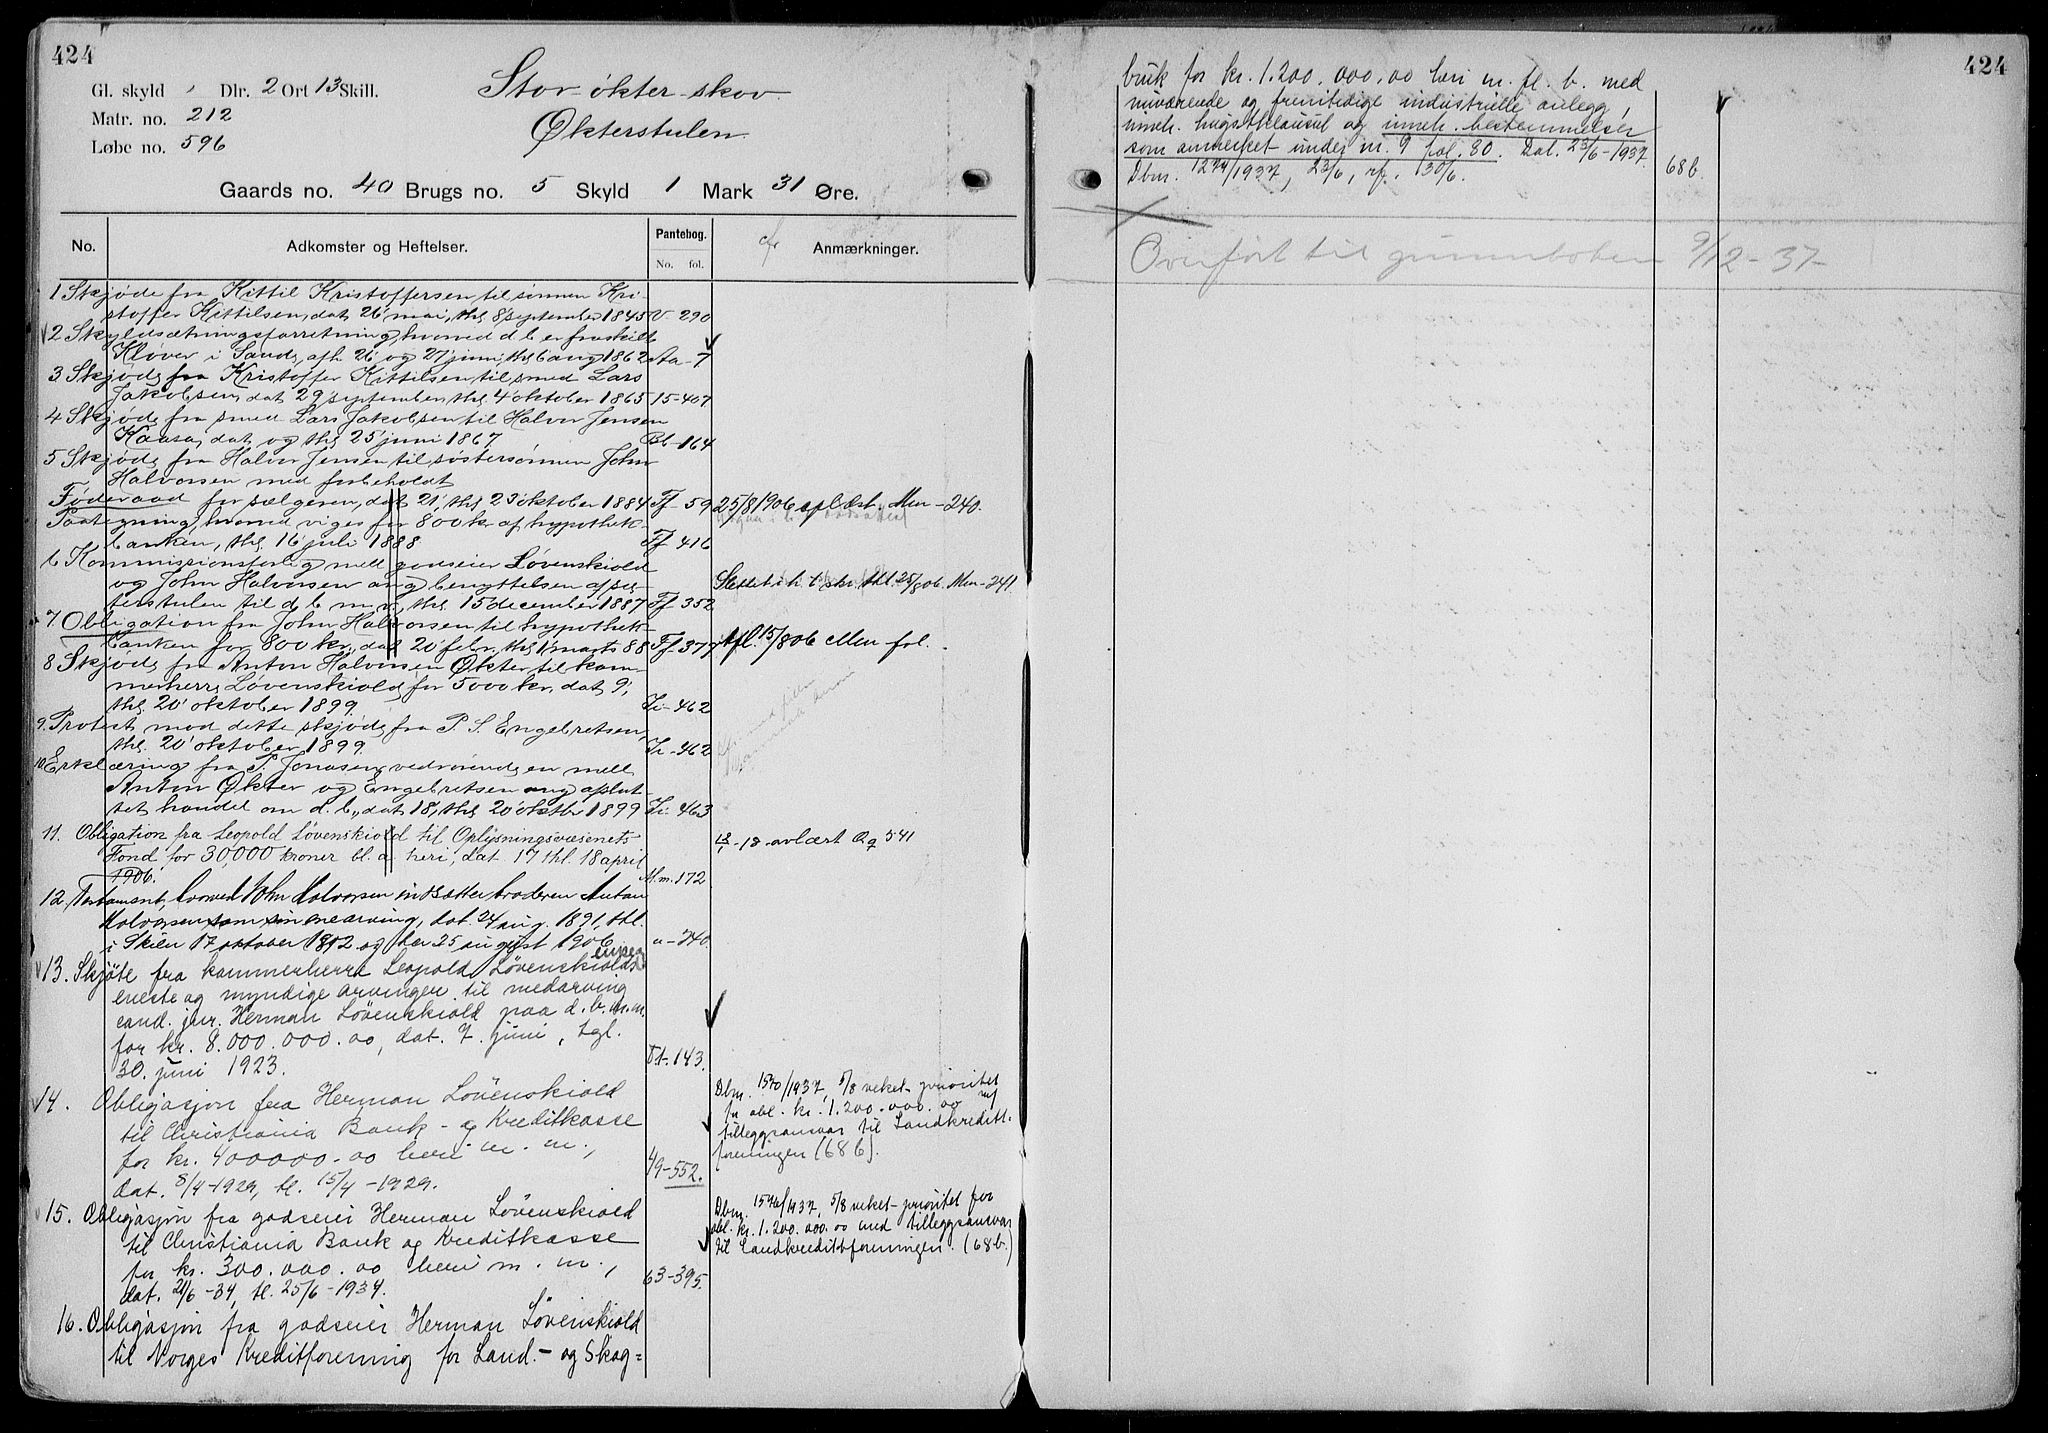 424
Gl. skyld " Dlr. 2 Ort 13 Skill.
Matr. no. 212
Løbe no. 596
Stor-økter-skov.
Økterstulen.
Gaards no. 40 Brugs no. 5 Skyld 1 Mark 31 Øre.
No. Adkomster og Heftelser. Pantebog. No. fol. Anmærkninger.
1 Skjøde fra Kittil Kristoffersen til sønnen Kri-
stoffer Kittilsen, dat 26 mai, thl 8 september 1845 V-290
2 Skyldsætningsforretning, hvorved d b er fraskilt
Kløver i Sande, afh 26 og 27 juni, thl 6 aug 1862 Aa-7
3 Skjøde fra Kristoffer Kittilsen til smed Lars
Jakobsen, dat 29 september, thl 4 oktober 1865 15-407
4 Skjøde fra smed Lars Jakobsen til Halvor Jensen
Kaasa, dat og thl 25 juni 1867 Bb-164
5 Skjøde fra Halvor Jensen til søstersønnen John
Halvorsen med forbeholdt
Føderaad for sælgeren, dat 21, thl 23 oktober 1884 Ff-59 25/8 1906 aflæst. Mm-240.
Paategning, hvorved viges for 800 kr af hypothek-
banken, thl 16 juli 1888 Ff 416
6 Kommissionsforlig mell godseier Løvenskiold
og John Halvorsen ang benyttelsen af Øk-
terstulen til d b m.v., thl 15 december 1887 Ff 352 Slettet i h. t. skr. thl. 25/8 06. Mm-241
7 Obligation fra John Halvorsen til hypothek-
banken for 800 kr, dat 20 febr, thl 1 marts 88 Ff 377 Afl. 15/8 06 Mm fol.
8 Skjøde fra Anton Halvorsen Økter til kam-
merherre Løvenskiold for 5000 kr, dat 9,
thl 20 oktober 1899. Ii-462
9. Protest mod dette skjøde fra P. S. Engebretsen,
thl. 20 oktober 1899. Ii-462
10 Erklæring fra P. Jonasen, vedrørende en mell
Anton Økter og Engebretsen ang aflut-
tet handel om d. b., dat 18, thl 20 oktbr 1899 Ii-463
11. Obligation fra Leopold Løvenskiold til Oplysningsvæsenets
Fond for 30,000 kroner bl. a heri, dat. 17 thl. 18 april
1906. M.m. 172 -18 avlæst Qq 541
12. Testament, hvorved John Halvorsen indsætter broderen Anton
Halvorsen som sin enearving, dat. 24 aug. 1891, thl.
i Skien 17 oktober 1892 og her 25 august 1906 " -240.
13. Skjøte fra kammerherre Leopold Løvenskiolds enke og
eneste og myndige arvinger til medarving
cand. jur. Herman Løvenskiold paa d. b. m. m.
for kr. 8.000.000.00, dat. 7. juni, tgl.
30. juni 1923. Tt-143.
14. Obligasjon fra Herman Løvenskiold
til Christiania Bank- og Kreditkasse
for kr. 400000.00 heri m. m.,
dat. 8/4-1929, tl. 15/4-1929. 49-552.
Dbm. 1570/1937, 5/8 veket prioritet
for obl. kr. 1.200.000.00 m/
tilleggsansvar til Landkreditt-
foreningen (68 b).
15. Obligasjon fra godseier Herman Løvenskiold
til Christiania Bank og Kreditkasse
for kr. 300.000.00 heri m. m.,
dat. 21/6-34, tl. 25/6-1934. 63-395.
Dbm. 1570/1937, 5/8 veket prioritet for
obl. kr. 1.200.000.00 med tilleggsansvar
til Landkredittforeningen. (68 b.)
16. Obligasjon fra godseier Herman Løvenskiold
til Norges Kreditforening for Land- og Skog-
424
bruk for kr. 1.200.000.00 heri m. fl. b. med
nuværende og fremtidige industrielle anlegg,
inneh. hugstklausul og inneh. bestemmelser
som anmerket under nr. 9 fol. 80. Dat. 23/6-1937.
Dbm. 1274/1937, 23/6, rf. 30/6. 68 b
Overført til grunnboken 9/12-37-